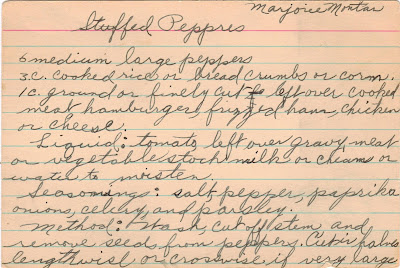 Marjorie Montan
Stuffed Peppres
6 medium large peppers
3. c. cooked rice or bread crumbs or corn.
1 c. ground or finely cut left over cooked
meat hamburger, frizzed ham, chicken
or cheese
Liquid: tomato, left over gravy, meat
or vegetable stock milk or cream or
water to moisten.
Seasonings: salt, pepper, paprika
onions, celery, and parsley.
Method: Wash, cut off stem, and
remove seed from peppers. Cut in halves
lengthwise or crosswise if very large